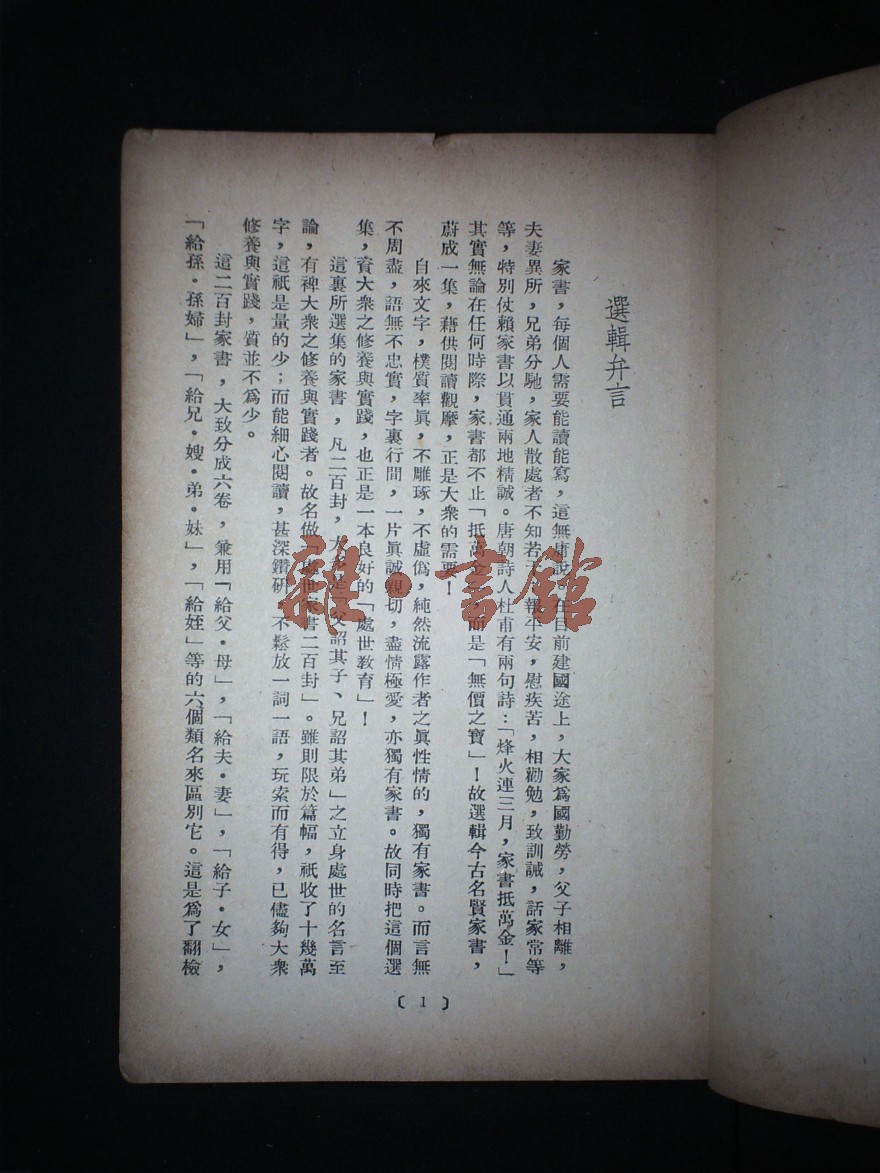 選輯弁言
家書，每個人需要能讀能寫，這無庸說。在目前建國途上，大家爲國勤勞，父子相離，
夫妻異所，兄弟分馳，家人散處者不知若干，報平安，慰疾苦，相勸勉，致訓誡，話家常等
等，特別仗賴家書以貫通兩地精誠。唐朝詩人杜甫有兩句詩：「烽火連三月，家書抵萬金！」
其實無論在任何時際，家書都不止「抵萬金」而是「無價之寶」！故選輯今古名賢家書，
蔚成一集，藉供閱讀觀摩，正是大衆的需要！
自來文字，樸質率眞，不雕琢，不虛僞，純然流露作者之眞性情的，獨有家書。而言無
不周盡，語無不忠實，字裏行間，一片眞誠親切，盡情極愛，亦獨有家書。故同時把這個選
集，資大衆之修養與實踐，也正是一本良好的「處世教育」！
這裏所選集的家書，凡二百封，大多是「父詔其子、兄詔其弟」之立身處世的名言至
論，有裨大衆之修養與實踐者。故名做「處世家書二百封」。雖則限於篇幅，祇收了十幾萬
字，這祇是量的少；而能細心閱讀，甚深鑽研，不鬆放一詞一語，玩索而有得，已儘夠大衆
修養與實踐，質並不爲少。
這二百封家書，大致分成六卷，兼用「給父・母」，「給夫・妻」，「給子・女」，
「給孫・孫婦」，「給兄・嫂・弟・妹」，「給姪」等的六個類名來區別它。這是爲了翻檢
〔1〕
雜・書館